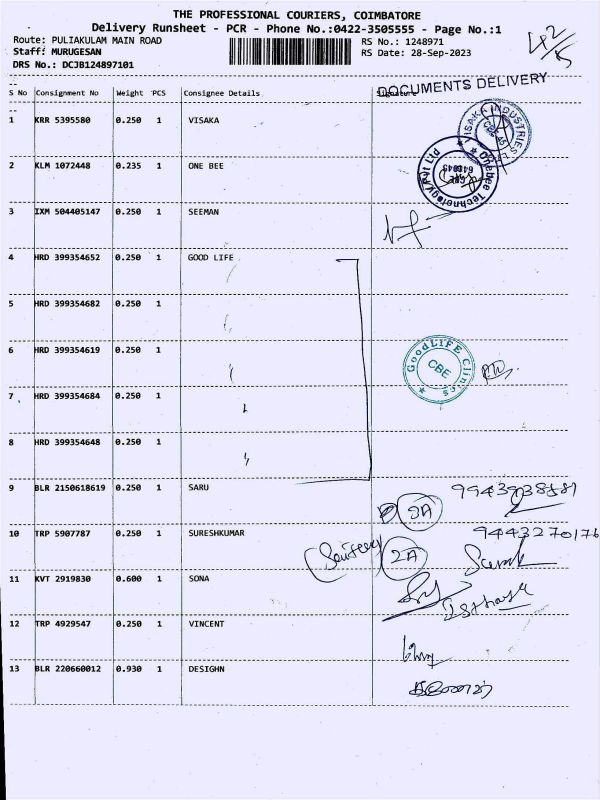 THE PROFESSIONAL COURIERS, COIMBATORE
Delivery Runsheet - PCR - Phone No.:0422-3505555 - Page No.:1
Route: PULIAKULAM MAIN ROAD
RS No.: 1248971
Staff: MURUGESAN
RS Date: 28-Sep-2023
DRS No.: DCJB124897101
42/5
DOCUMENTS DELIVERY
S No Consignment No Weight PCS Consignee Details Signature
1 KRR 5395580 0.250 1 VISAKA
2 KLM 1072448 0.235 1 ONE BEE
3 IXM 504405147 0.250 1 SEEMAN
4 HRD 399354652 0.250 1 GOOD LIFE
5 HRD 399354682 0.250 1
6 HRD 399354619 0.250 1
GoodLIFE Clinics
CBE
7 HRD 399354684 0.250 1
8 HRD 399354648 0.250 1
9 BLR 2150618619 0.250 1 SARU
9A
10 TRP 5907787 0.250 1 SURESHKUMAR
9443270176
2A
11 KVT 2919830 0.600 1 SONA
12 TRP 4929547 0.250 1 VINCENT
13 BLR 220660012 0.930 1 DESIGHN